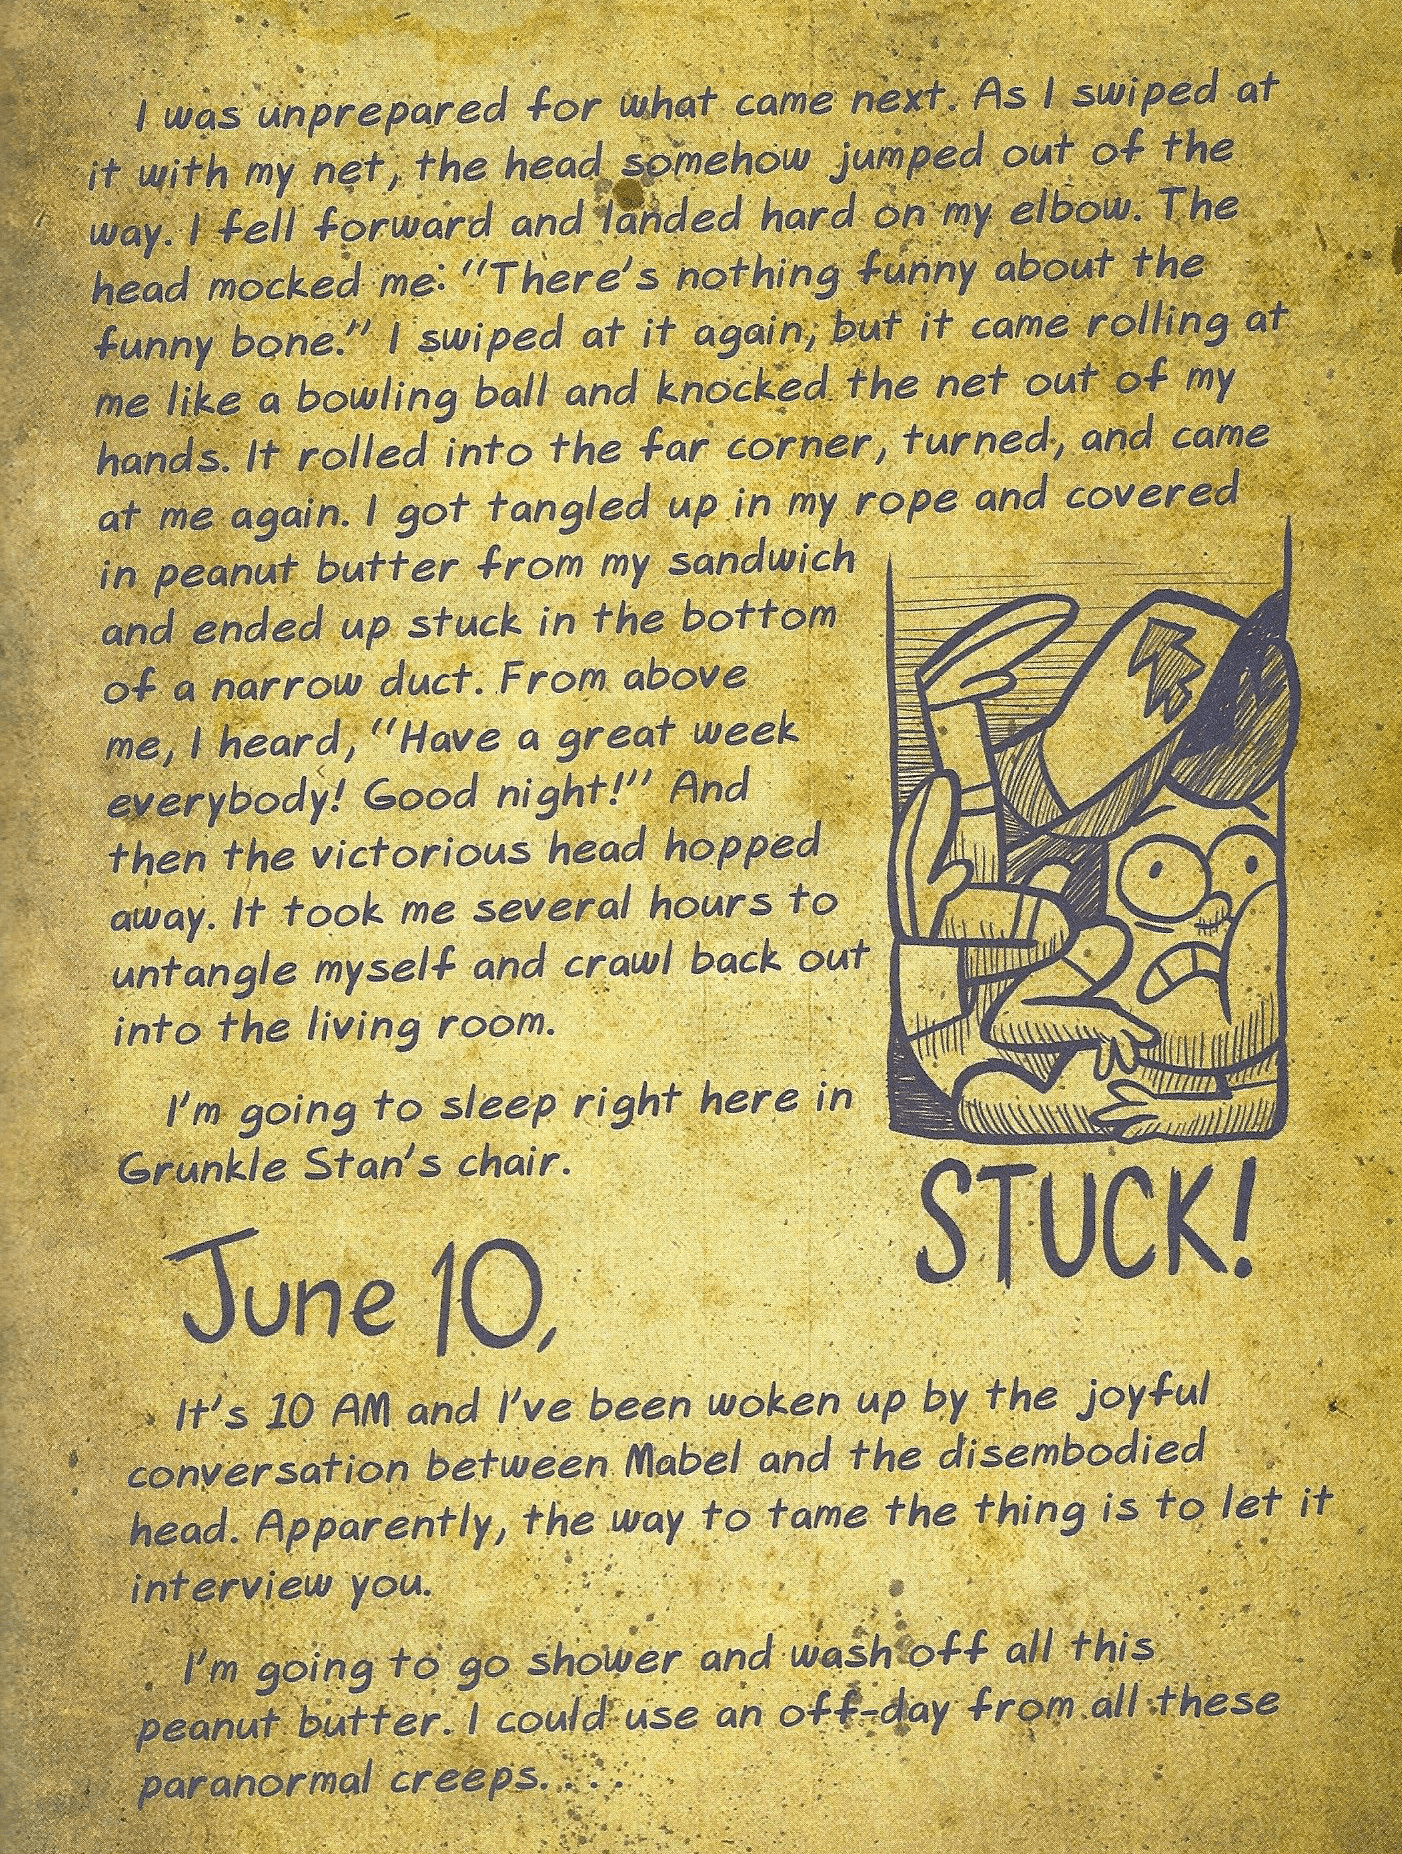 I was unprepared for what came next. As I swiped at
it with my net, the head somehow jumped out of the
way. I fell forward and landed hard on my elbow. The
head mocked me: "There's nothing funny about the
funny bone." I swiped at it again, but it came rolling at
me like a bowling ball and knocked the net out of my
hands. It rolled into the far corner, turned, and came
at me again. I got tangled up in my rope and covered
in peanut butter from my sandwich
and ended up stuck in the bottom
of a narrow duct. From above
me, I heard, "Have a great week
everybody! Good night!" And
then the victorious head hopped
away. It took me several hours to
untangle myself and crawl back out
into the living room.
I'm going to sleep right here in
Grunkle Stan's chair.
STUCK!
June 10,
It's 10 AM and I've been woken up by the joyful
conversation between Mabel and the disembodied
head. Apparently, the way to tame the thing is to let it
interview you.
I'm going to go shower and wash off all this
peanut butter. I could use an off-day from all these
paranormal creeps....